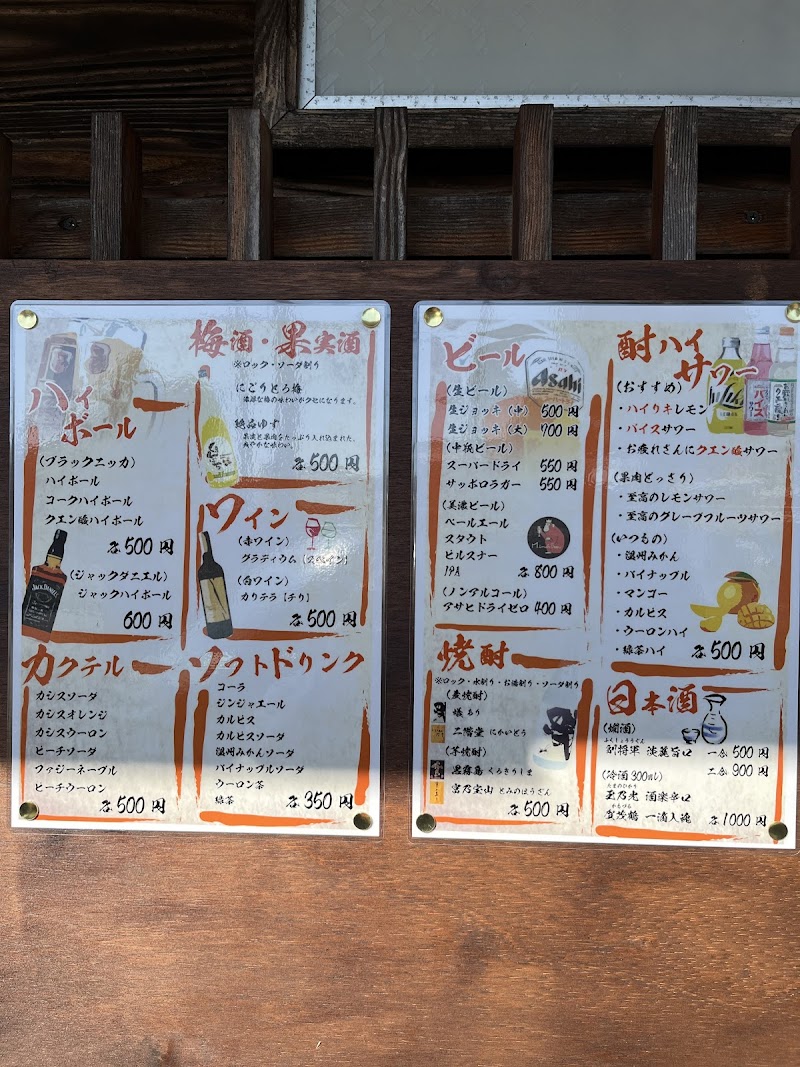 梅酒・果実酒
※ロック・ソーダ割り
にごりとろ梅
濃厚な梅の味わいがクセになります。
絶品ゆず
果汁と果肉をたっぷり入れ込まれた、
爽やかな味わい。
各500円
ハイ
ボール
(ブラックニッカ)
ハイボール
コークハイボール
クエン酸ハイボール
各500円
JACK DANIEL'S
(ジャックダニエル)
ジャックハイボール
600円
ワイン
(赤ワイン)
グラティウム【スペイン】
(白ワイン)
カリテラ【チリ】
各500円
カクテル
カシスソーダ
カシスオレンジ
カシスウーロン
ピーチソーダ
ファジーネーブル
ピーチウーロン
各500円
ソフトドリンク
コーラ
ジンジャエール
カルピス
カルピスソーダ
温州みかんソーダ
パイナップルソーダ
ウーロン茶
緑茶
各350円
ビール
Asahi
(生ビール)
生ジョッキ(中) 500円
生ジョッキ(大) 700円
(中瓶ビール)
スーパードライ 550円
サッポロラガー 550円
(美濃ビール)
ペールエール
スタウト
ピルスナー
IPA 各800円
(ノンアルコール)
アサヒドライゼロ 400円
酎ハイ
サワー
バイス
(おすすめ)
・ハイリキレモン
・バイスサワー
・お疲れさんにクエン酸サワー
(果肉どっさり)
・至高のレモンサワー
・至高のグレープフルーツサワー
(いつもの)
・温州みかん
・パイナップル
・マンゴー
・カルピス
・ウーロンハイ
・緑茶ハイ 各500円
焼酎
※ロック・水割り・お湯割り・ソーダ割り
(麦焼酎)
二階堂 にかいどう
(芋焼酎)
黒霧島 くろきりしま
富乃宝山 とみのほうざん
各500円
日本酒
(燗酒)
ふくしょうぐん
副将軍 淡麗旨口 一合500円
二合900円
(冷酒300mL)
たまのひかり
玉乃光 酒楽辛口
かもづる
賀茂鶴 一滴入魂 各1000円